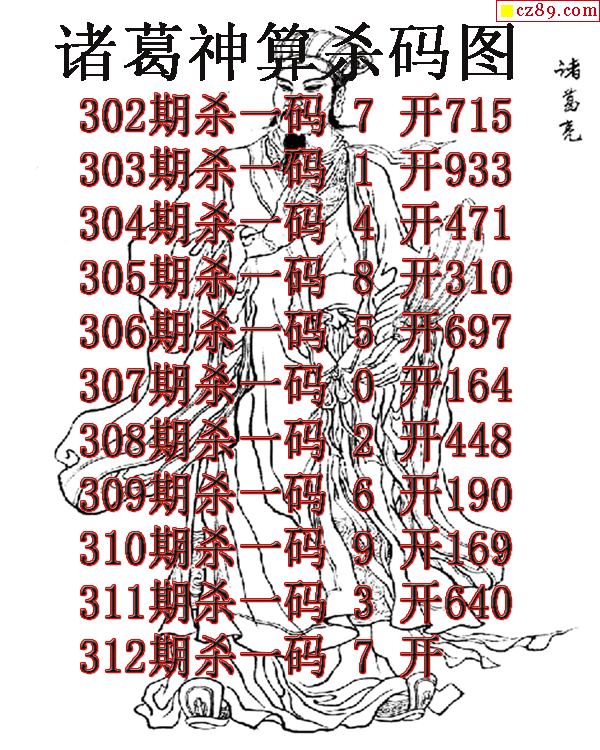 cz89.com
诸葛神算杀码图
诸葛亮
302期杀一码 7 开715
303期杀一码 1 开933
304期杀一码 4 开471
305期杀一码 8 开310
306期杀一码 5 开697
307期杀一码 0 开164
308期杀一码 2 开448
309期杀一码 6 开190
310期杀一码 9 开169
311期杀一码 3 开640
312期杀一码 7 开